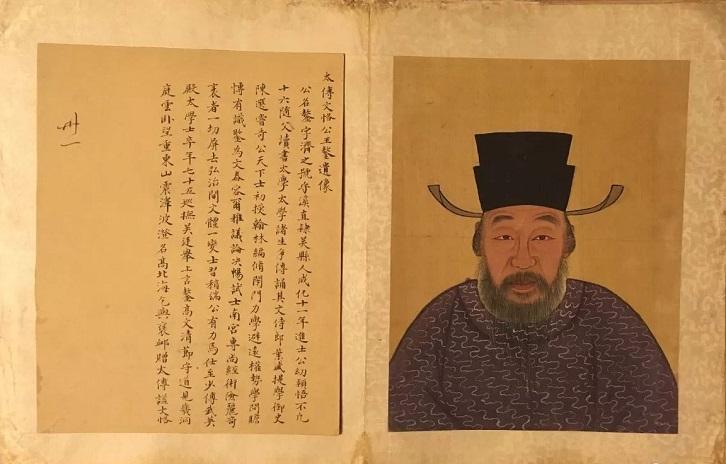 太傅文恪公王鏊遺像
公名鏊字濟之號守溪直隸吳縣人成化十一年進士公幼穎悟不凡
十六隨父讀書太學太學諸生爭傳誦其文侍郎葉盛提學御史
陳選奇公天下士初授翰林編脩閉門力學避遠權勢學問贍
博有識鑒為文春容爾雅議論決暢試士南宮專尚經術險麗奇
袤者一切屏去弘治間文體一變士習稍端公有力焉仕至少傅武英
殿大學士卒年七十五巡撫吳廷舉上言鏊高文清節守道見幾洞
庭雲臥望重東山震澤波澄名高北海乞與褒卹贈太傅諡文恪
卅一